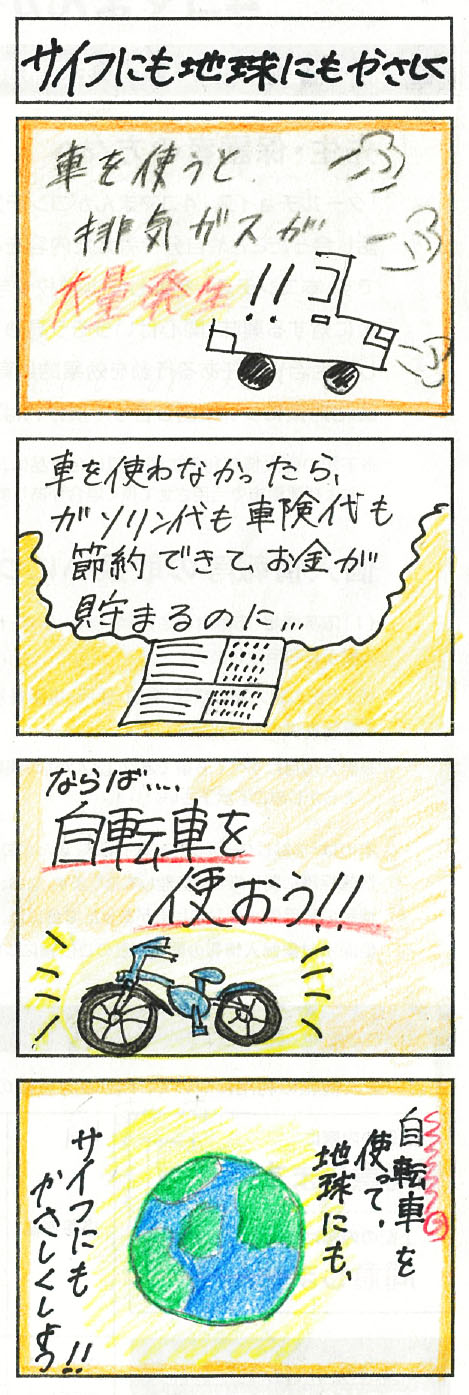 サイフにも地球にもやさしく
車を使うと
排気ガスが
大量発生!!
車を使わなかったら、
ガソリン代も車険代も
節約できて、お金が
貯まるのに...
ならば....
自転車を
使おう!!
自転車を
使って、
地球にも、
サイフにも
やさしくしよう!!